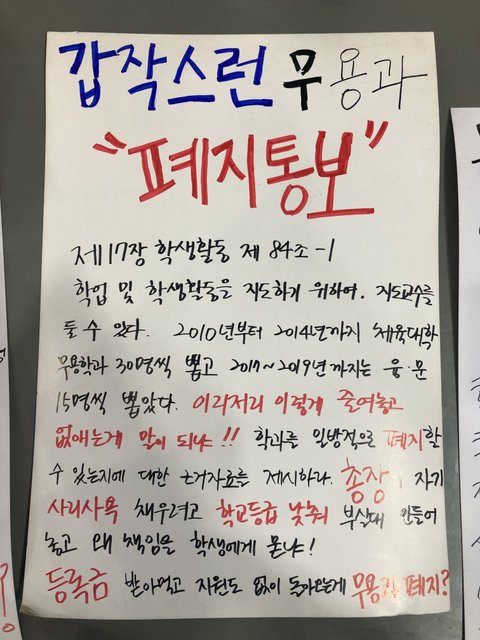 갑작스런 무용과
"폐지통보"
제17장 학생활동 제 84조-1
학업 및 학생활동을 지도하기 위하여, 지도교수를
둘 수 있다. 2010년부터 2014년까지 체육대학
무용학과 30명씩 뽑고 2017~2019년까지는 융·문
15명씩 뽑았다. 이리저리 이렇게 줄여놓고
없애는게 말이 되냐!! 학과를 일방적으로 폐지할
수 있는지에 대한 근거자료를 제시하라. 총장이 자기
사리사욕 채우려고 학교등급 낮춰 부실대 만들어
놓고 왜 책임을 학생에게 묻냐!
등록금 받아먹고 지원도 없이 돌아오는게 무용과 폐지?